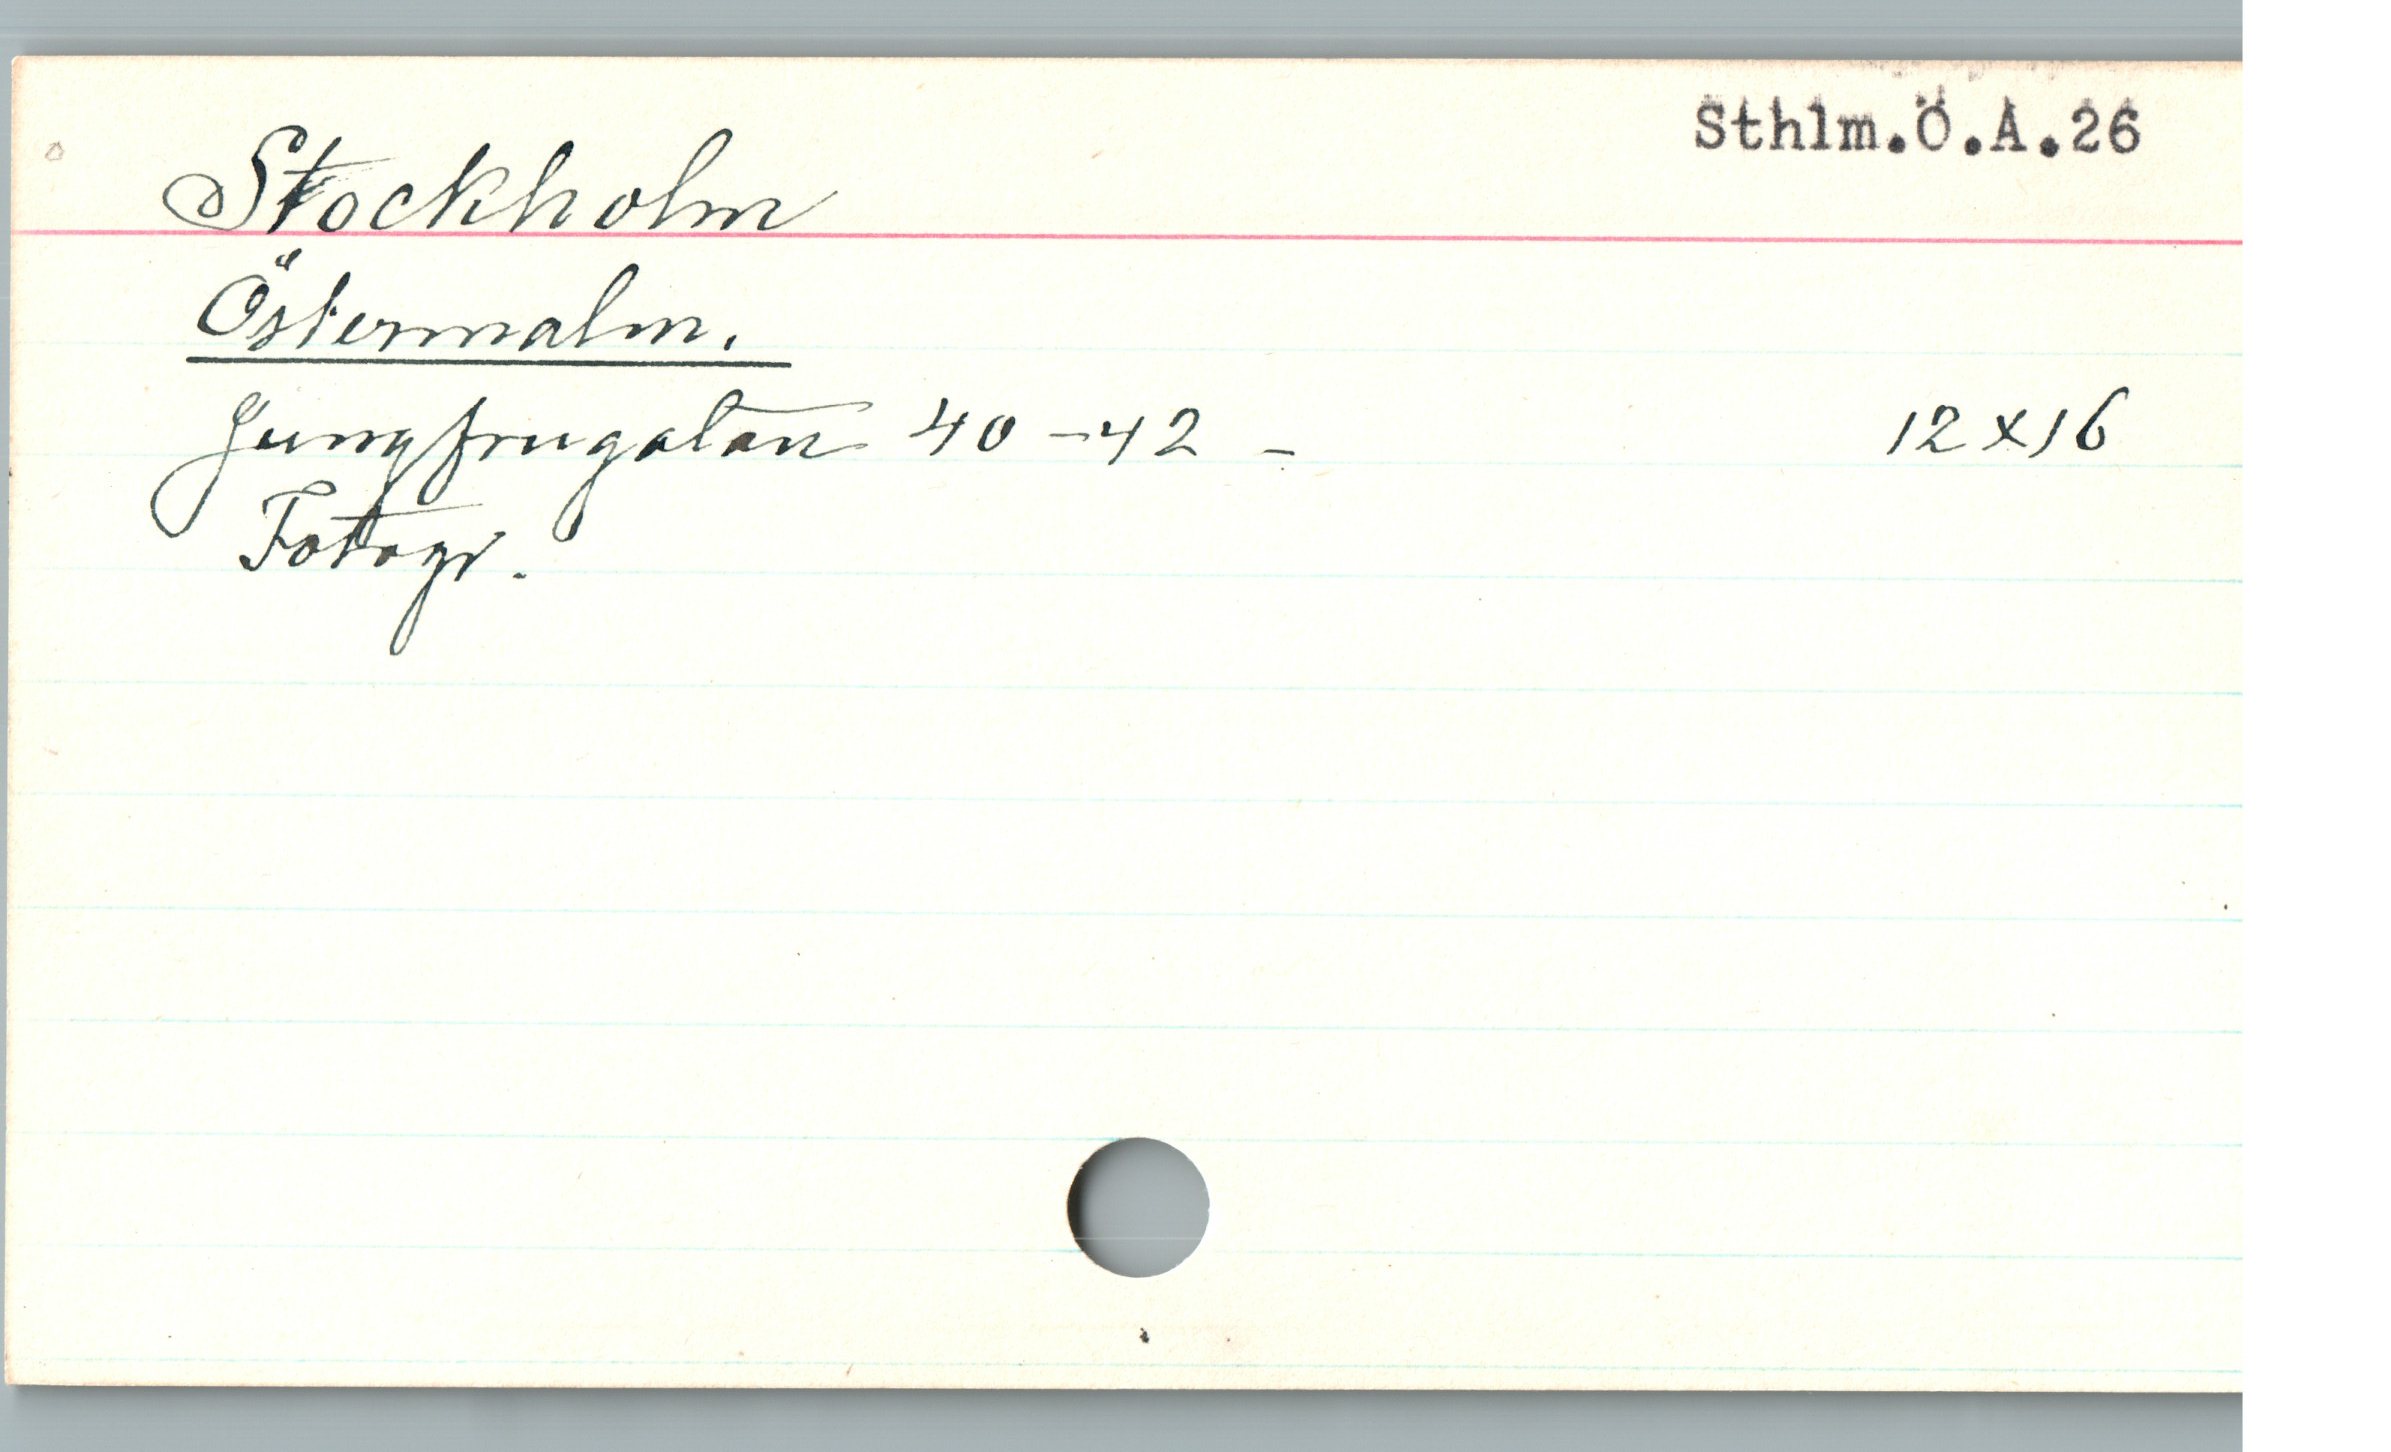 Sthlm.Ö.A.26
Stockholm
Östermalm.
Jungfrugatan 40-42- 12x16
Fotogr.